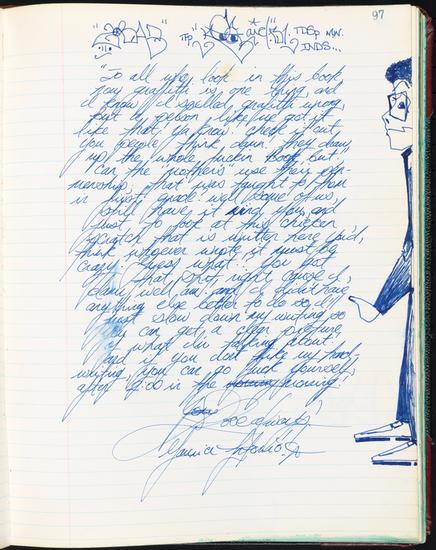 97
"To all who look in this book,
say graffiti is one thing, and
I know I spelled graffiti wrong,
but a person like me got it
like that, ya know. Check it out,
you people think damn, they draw
up the whole fuckin book, but,
can the "mothers" use their pen-
menship, that was taught to them
in first grade. Well some of us,
still have it flow, and
just to look at this chicken
scratch that is written here you'd,
think whoever wrote it must be
crazy. Guess what,
that shot right cause I,
damn well am, and I didn't have
anything else better to do so I'll
just slow down my writing so
you can get a clear picture,
of what I'm talking about.
and if you don't like my hand-
writing, you can go fuck yourself,
after 4:00 in the morning!
Love always!